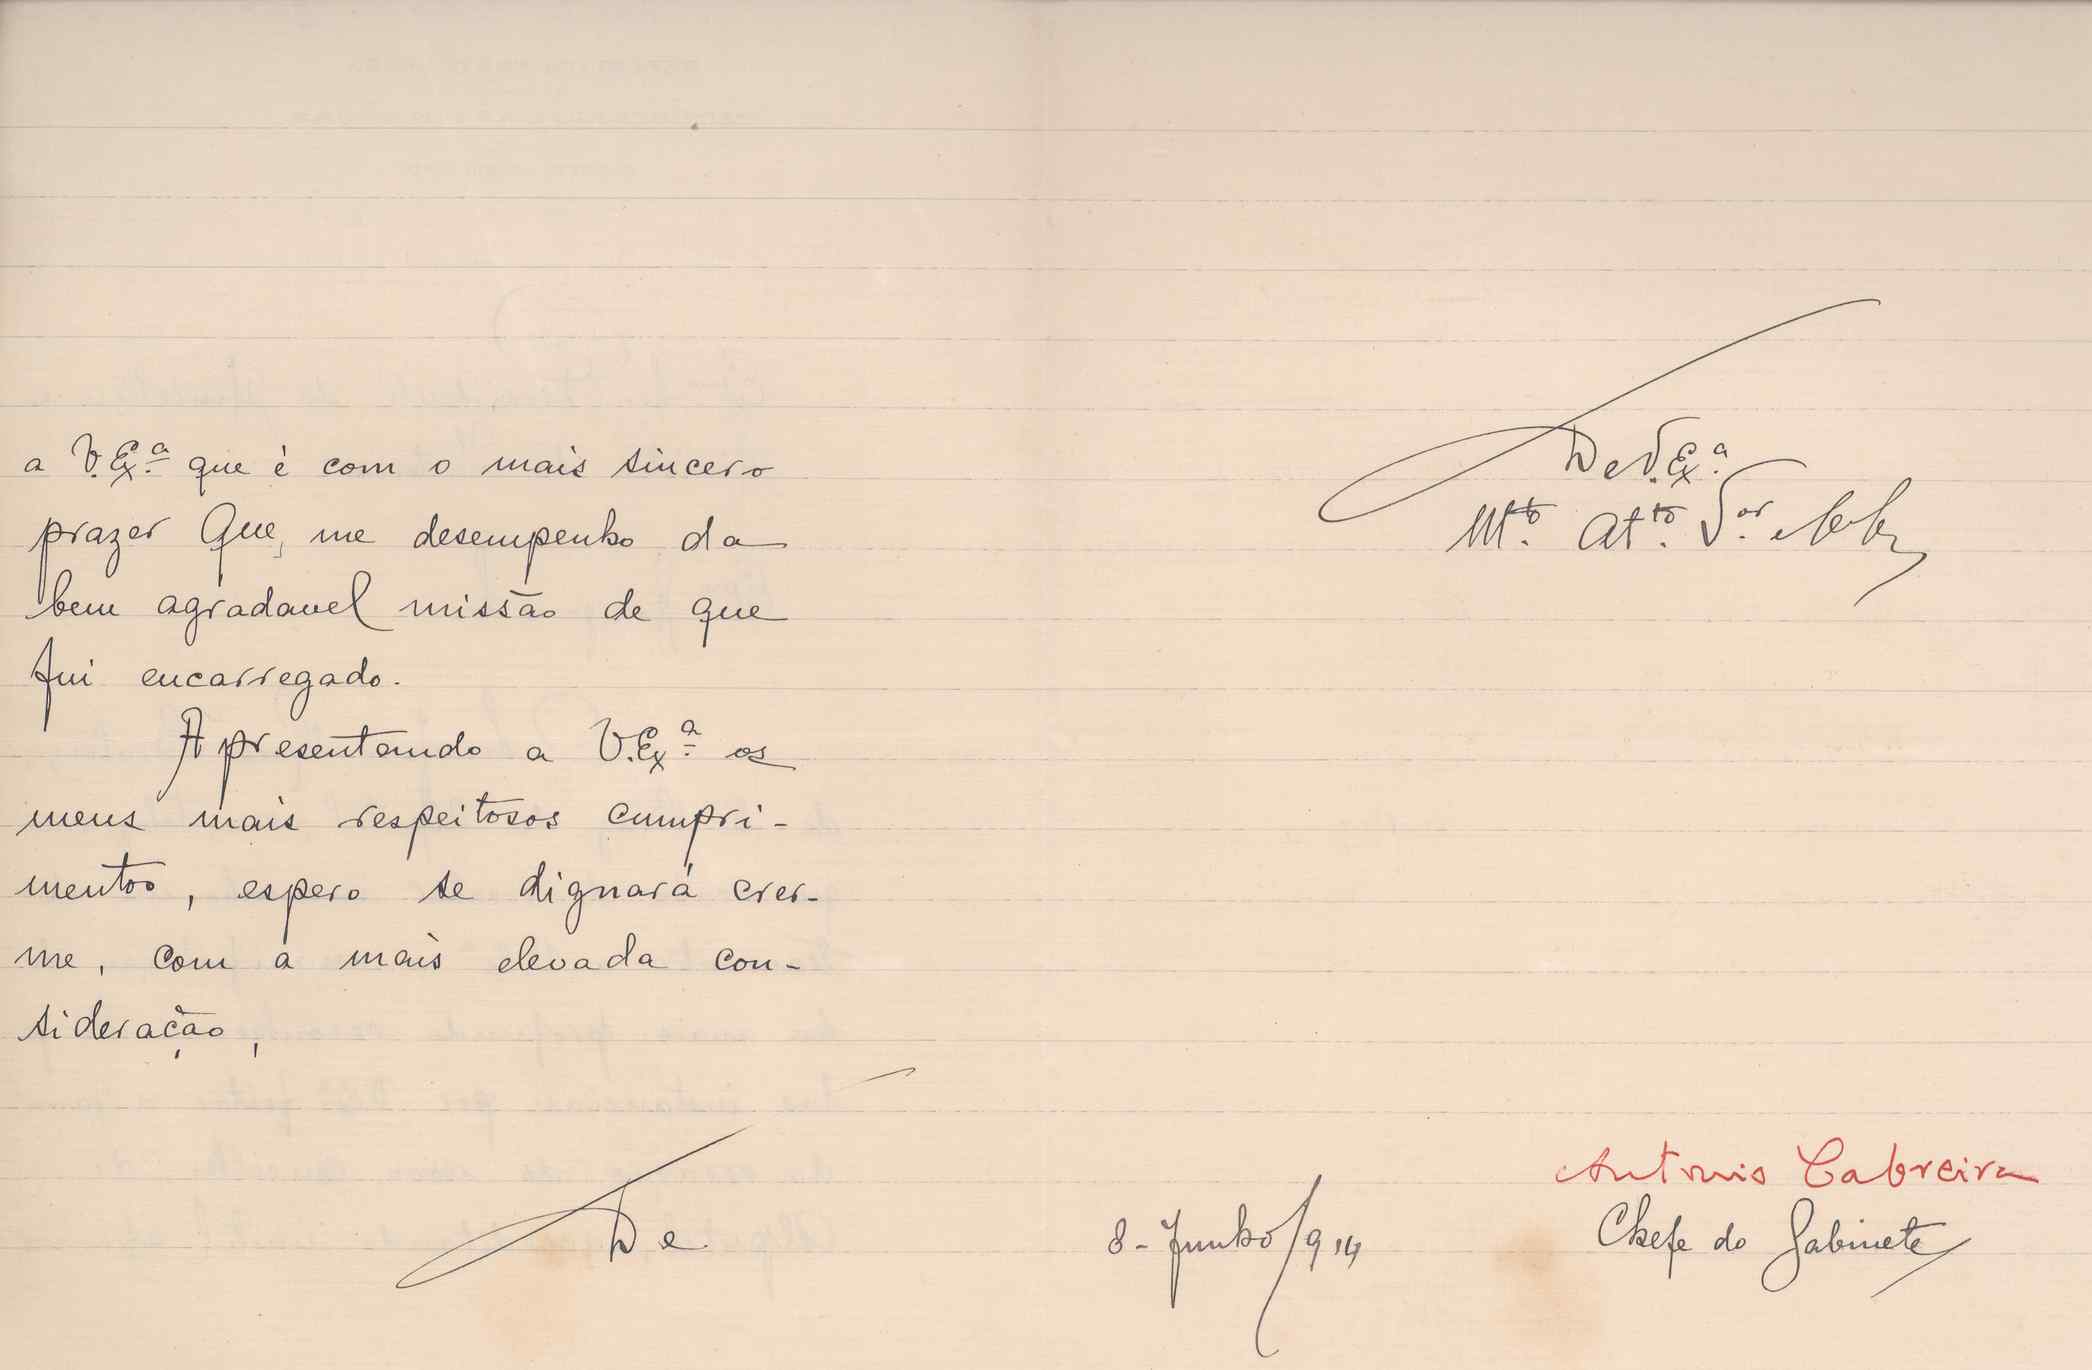 a V. Exª. que é com o mais sincero
prazer que, me desempenho da
bem agradavel missão de que
fui encarregado.
Apresentando a V. Exª. os
meus mais respeitosos cumpri-
mentos, espero se dignará crer-
me, com a mais elevada con-
sideração,
De
De V. Exª.
Mto. Atto. Vor.
8-Junho/914
Antonio Cabreira
Chefe do Gabinete